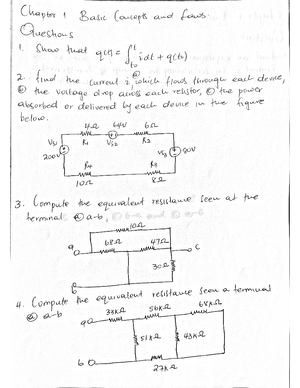 Chapter 1 Basic Concepts and Laws.
Questions
1. Show that q(t) = ∫ᵗₜ₀ idt + q(t₀)
2. Find the current i which flows through each device,
ⓑ the voltage drop across each resistor, ⓒ the power
absorbed or delivered by each device in the figure
below.
4Ω 64V 6Ω
R1 Vs2 R2
Vs1 200V
Vs3 80V
R4 R3
10Ω 8Ω
3. Compute the equivalent resistance seen at the
terminal ⓐ a-b,
10Ω
a 68Ω 47Ω c
30Ω
b
4. Compute the equivalent resistance seen a terminal
ⓐ a-b
a 33KΩ 56KΩ 68KΩ
51KΩ 43KΩ
b
27KΩ